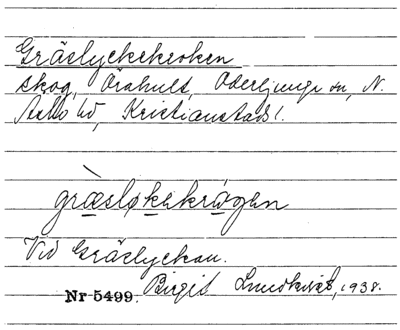 Gräslyckekroken
skog, Örahult, Oderljunga sn, N.
Åsbo hd, Kristianstads l.
græsløkekrògen
Vid Gräslyckan.
Nr 5499. Birgit Lundkvist, 1938.